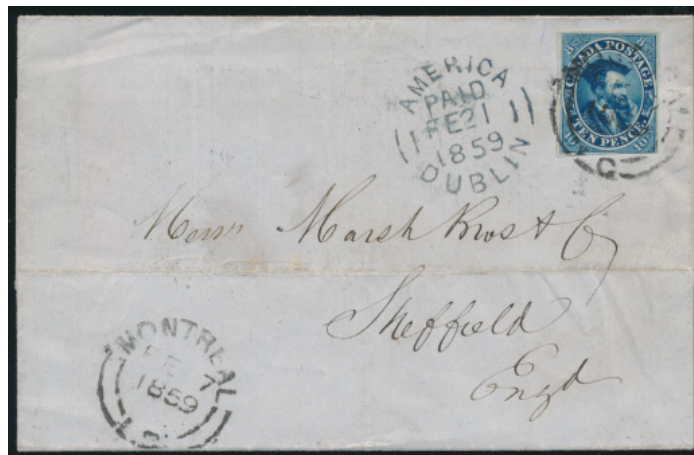 AMERICA
PAID
FE21
1859
DUBLIN
8 STG 8
CANADA POSTAGE
TEN PENCE.
10 10
C
Messrs Marsh Bros & Co
Sheffield
Engd
MONTREAL
FE 7
1859
L.C.